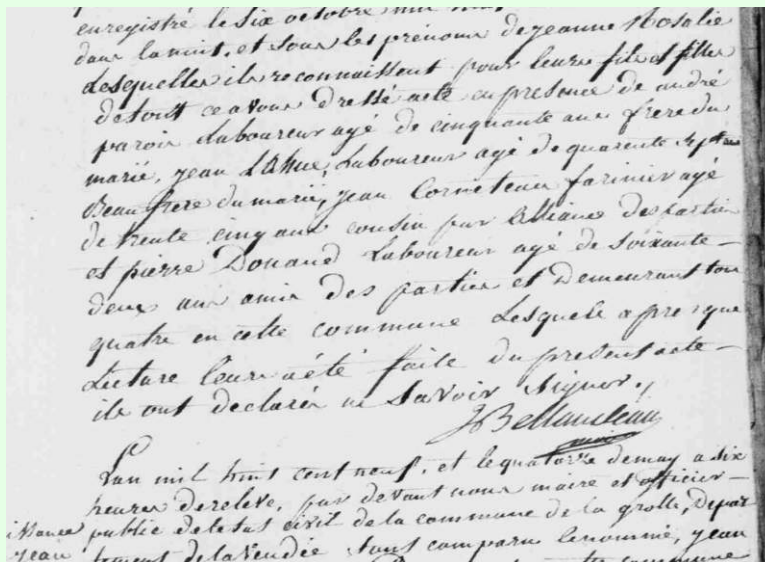 enregistré le six octobre mil huit
dans la nuit, et sous les prénoms de jeanne Rosalie
Lesquelles ils reconnaissent pour leurs fils et filles
de tout ce avons dressé acte en presence de andré
parois Laboureur agé de cinquante ans frere du
marié, jean Laboureur agé de quarente sept ans
Beau frere du marié, jean Corneteau farinier agé
de trente cinq ans cousin par alliance des parties
et pierre Douaud Laboureur agé de soixante –
deux ans amis des parties et Demeurant tous
quatre en cette commune Lesquels apres que
Lecture leur a été faite du present acte –
ils ont declarés ne savoir signer.
Lan mil huit cent neuf, et le quatorze de may a six
heures de releve, par devant nous maire et officier –
public de letat civil de la commune de la grolle, Depar
tement de la vendée sans comparu le nommé, jean
issance
jean
commune